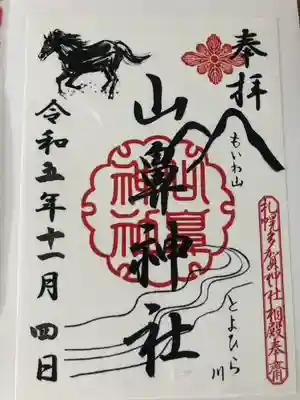 奉拝
もいわ山
札幌多賀神社相殿奉斎
山鼻神社
とよひら川
令和五年十一月四日